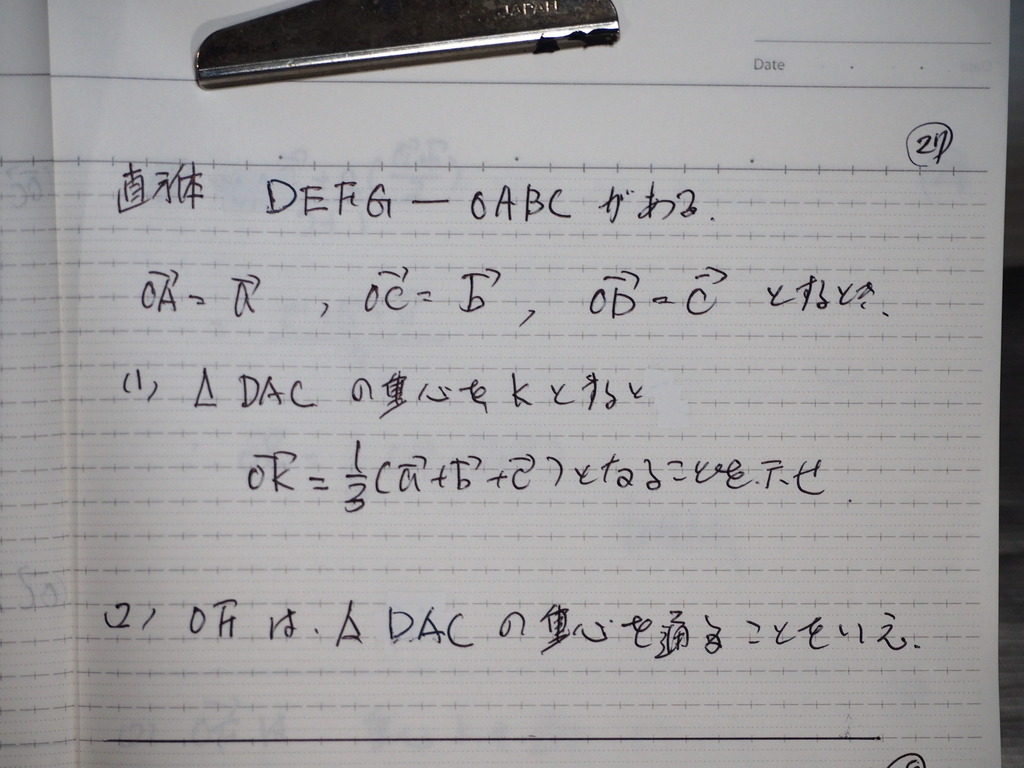 JAPAN
Date
27
直方体 DEFG — OABC がある.
→OA = →a , →OC = →b , →OD = →c とするとき、
(1) △ DAC の重心を K とすると
→OK = 1/3 (→a + →b + →c) となることを示せ
(2) OF は、△ DAC の重心を通ることをいえ.